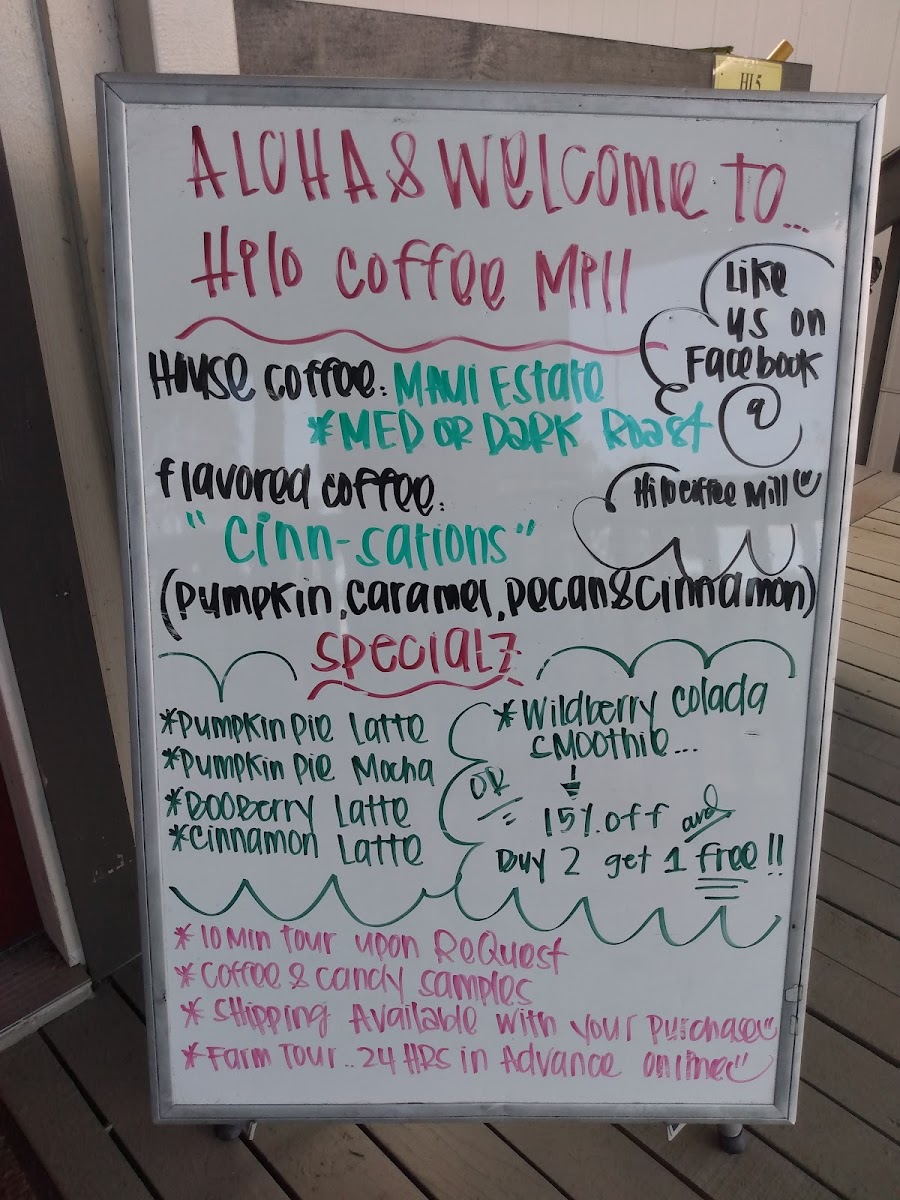 HI 5
ALOHA & WELCOME TO...
Hilo Coffee Mill
Like
us on
Facebook
@
Hilo Coffee Mill
House Coffee: MAUI Estate
*MED OR DARK Roast
flavored coffee:
"Cinn-sations"
(pumpkin, caramel, pecan & cinnamon)
SPECIALZ
*Pumpkin Pie Latte
*Pumpkin Pie Mocha
*BOOBerry Latte
*Cinnamon Latte
*Wildberry Colada
SMOOTHIE...
OR
15% off and
Buy 2 get 1 free!!
*10 Min tour upon ReQuest
*Coffee & candy samples
*SHipping Available with your purchase
*Farm Tour.. 24 HRS in Advance online